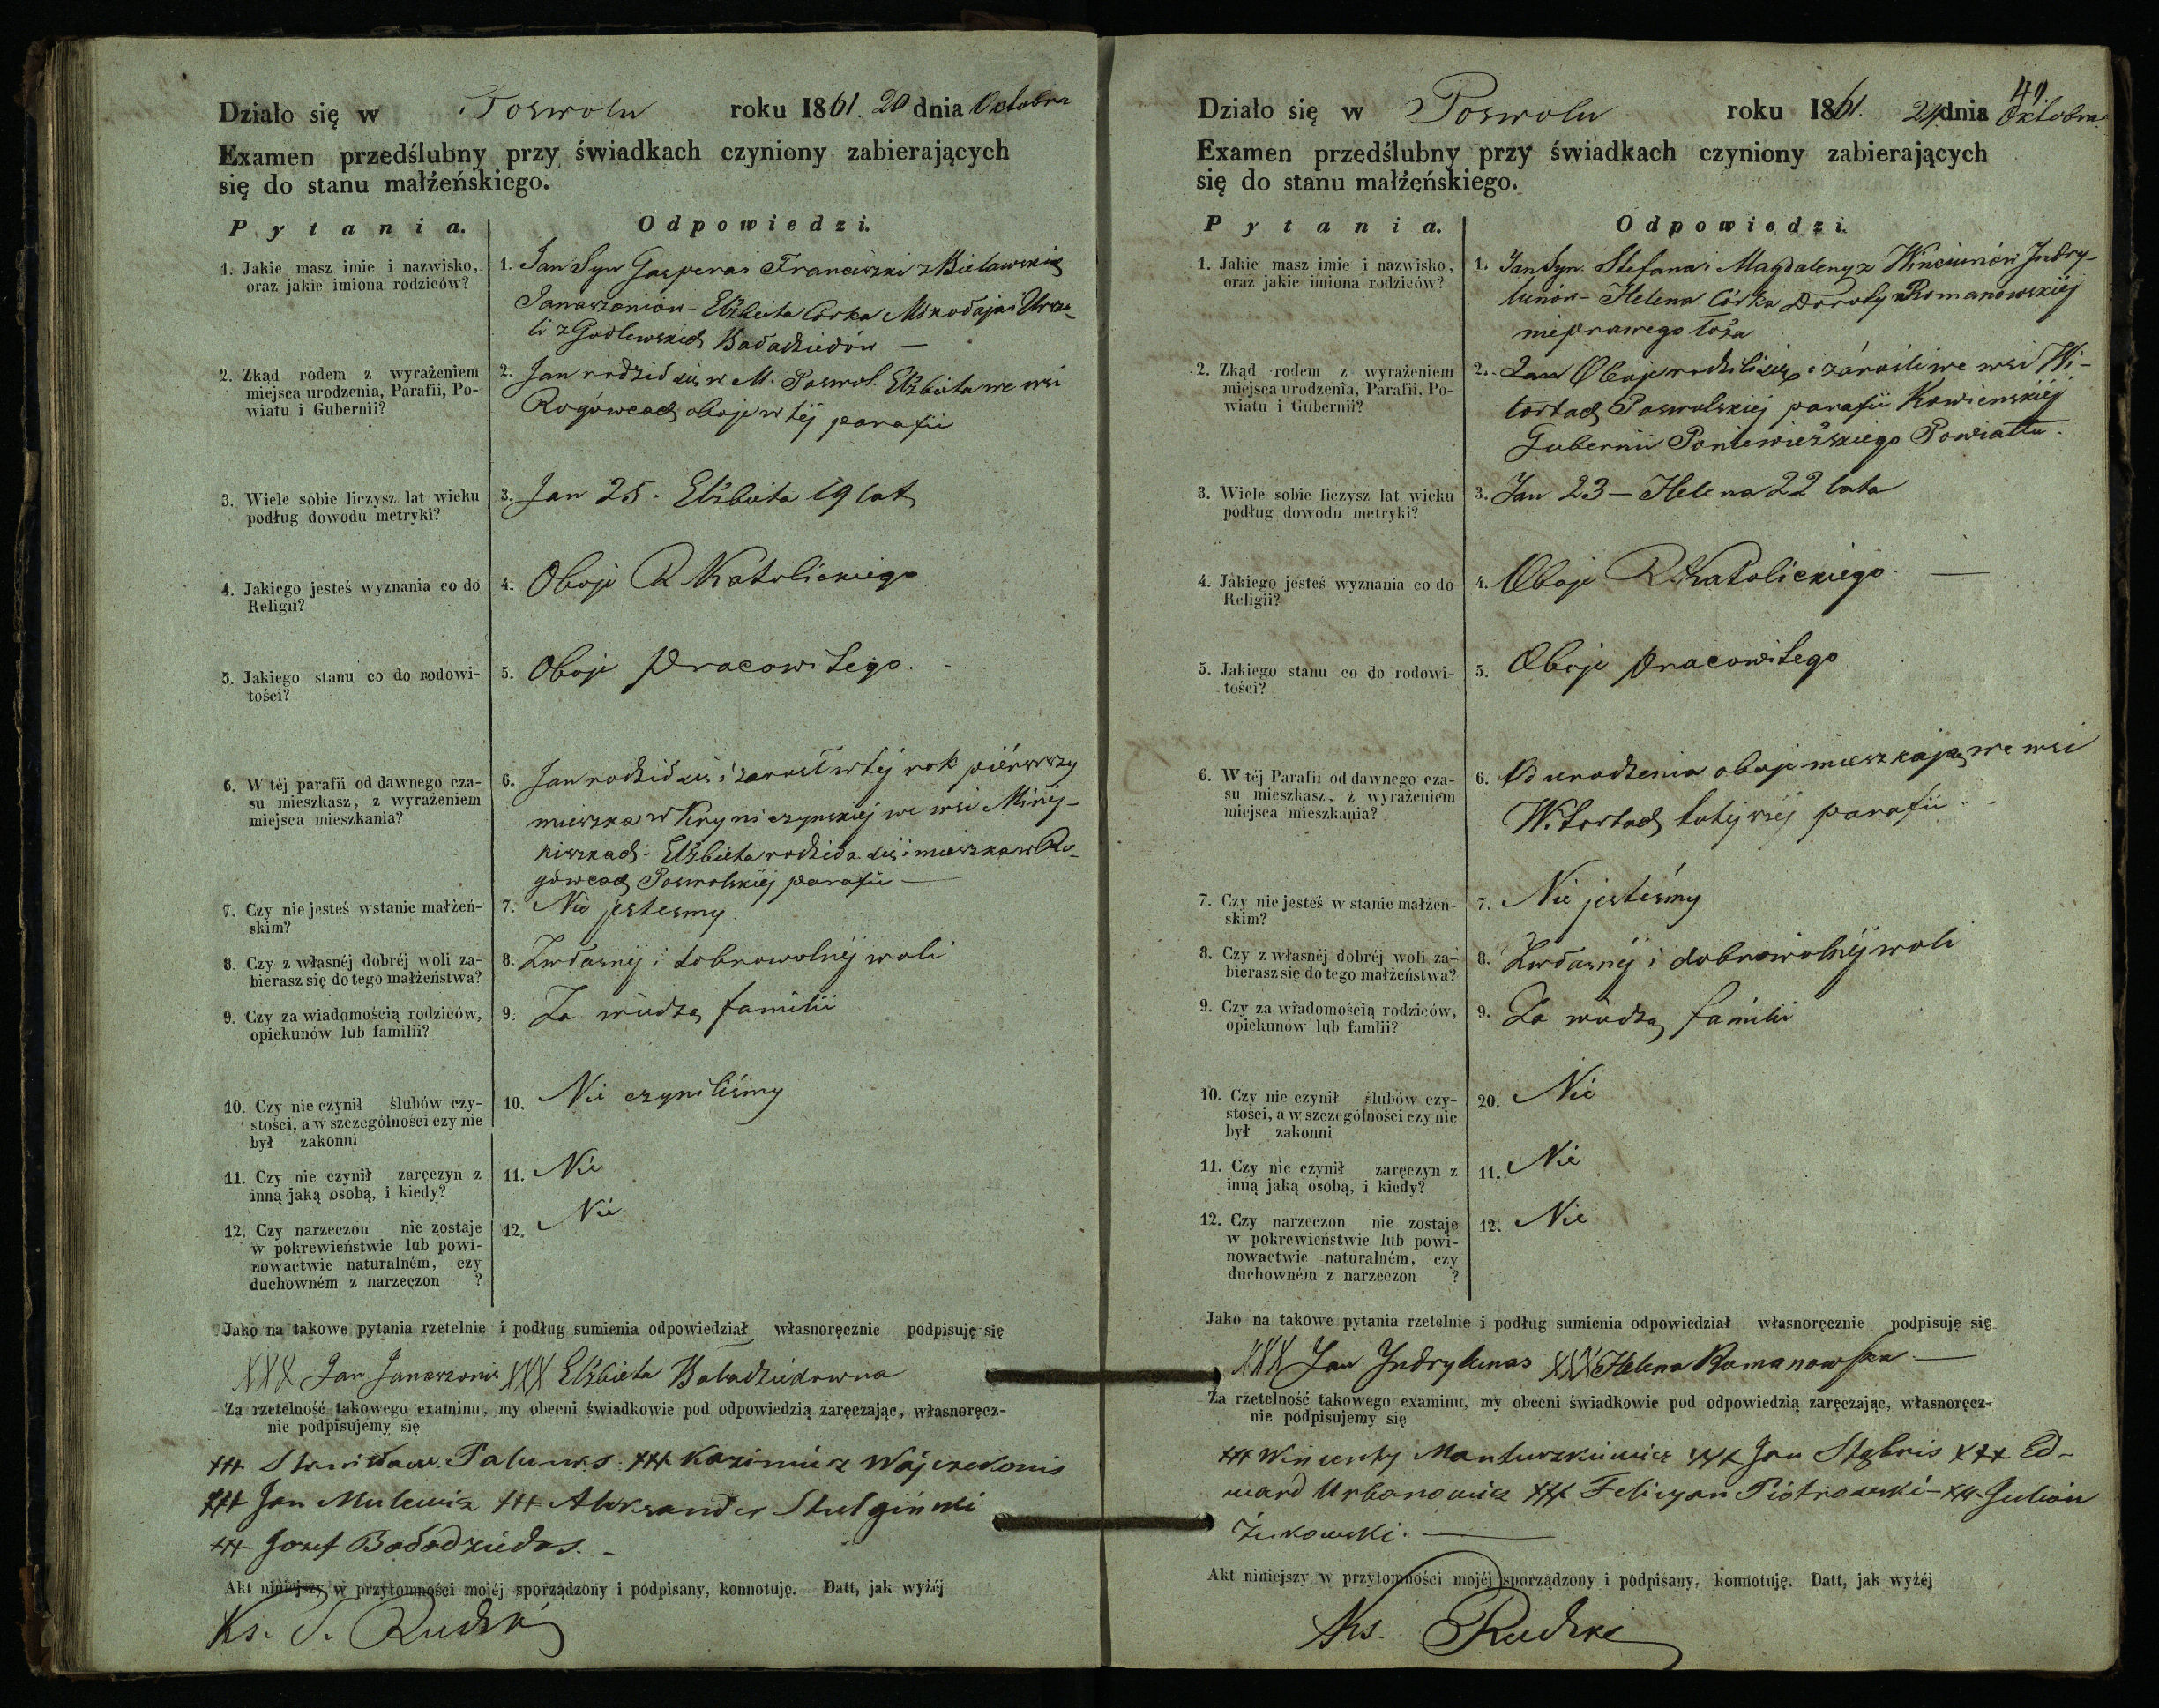 Działo się w Poswolu roku 1861. 20 dnia Oktobra
Examen przedślubny przy świadkach czyniony zabierających
się do stanu małżeńskiego.
Pytania. Odpowiedzi.
1. Jakie masz imie i nazwisko,
oraz jakie imiona rodziców?
1. Jan Syn Gaspera i Franciszki z Bielawskich
Janaszonion - Elżbieta Córka Mikołaja i Urszu-
li z Godlewskich Baładziedów —
2. Zkąd rodem z wyrażeniem
miejsca urodzenia, Parafii, Po-
wiatu i Gubernii?
2. Jan rodził się w M. Poswol. Elżbieta we wsi
Rogówcach oboje w téj parafii
3. Wiele sobie liczysz lat wieku
podług dowodu metryki?
3. Jan 25. Elżbieta 19 lat
4. Jakiego jesteś wyznania co do
Religii?
4. Oboje R Katolickiego
5. Jakiego stanu co do rodowi-
tości?
5. Oboje Pracowitego.
6. W téj parafii od dawnego cza-
su mieszkasz, z wyrażeniem
miejsca mieszkania?
6. Jan rodził się i zarost w téj rok piérwszy
mieszka w Kryniczynskiej we wsi
Elżbieta rodziła się i mieszka w Ro-
gówcach Poswolskiéj parafii —
7. Czy nie jesteś w stanie małżeń-
skim?
7. Nie jestesmy.
8. Czy z własnéj dobréj woli za-
bierasz się do tego małżeństwa?
8. Zwłasnéj i dobrowolnéj woli
9. Czy za wiadomością rodziców,
opiekunów lub familii?
9. Za wiedzą familii
10. Czy nie czynił ślubów czy-
stości, a w szczególności czy nie
był zakonni
10. Nie czyniliśmy
11. Czy nie czynił zaręczyn z
inną jaką osobą, i kiedy?
11. Nie
12. Czy narzeczon nie zostaje
w pokrewieństwie lub powi-
nowactwie naturalném, czy
duchowném z narzeczon ?
12. Nie
Jako na takowe pytania rzetelnie i podług sumienia odpowiedział własnoręcznie podpisuję się
XXX Jan Janaszonis XXX Elżbieta Baładziedowna
Za rzetelność takowego examinu, my obecni świadkowie pod odpowiedzią zaręczając, własnoręcz-
nie podpisujemy się
+++ Stanisław +++ Kazimiérz Wójczekonis
+++ Jan Mulewicz +++ Aleksander Stulgiński
+++ Jozef Baładziedas. -
Akt niniejszy w przytomności mojéj sporządzony i podpisany, konnotuję. Datt, jak wyżéj
Ks. J. Rudzki
49
Działo się w Poswolu roku 1861. 24 dnia Oktobra
Examen przedślubny przy świadkach czyniony zabierających
się do stanu małżeńskiego.
Pytania. Odpowiedzi.
1. Jakie masz imie i nazwisko,
oraz jakie imiona rodziców?
1. Jan Syn Stefana i Magdaleny z Winciunów Indry-
lunów - Helena Córka Doroty Romanowskiéj
nieprawego łoża
2. Zkąd rodem z wyrażeniem
miejsca urodzenia, Parafii, Po-
wiatu i Gubernii?
2. Oboje rodzili się i zarośli we wsi Wi-
tortach Poswolskiéj parafii Kowienskiéj
Gubernii Poniewieżskiego Powiattu.
3. Wiele sobie liczysz lat wieku
podług dowodu metryki?
3. Jan 23 — Helena 22 lata
4. Jakiego jesteś wyznania co do
Religii?
4. Oboje R Katolickiego. —
5. Jakiego stanu co do rodowi-
tości?
5. Oboje pracowitego
6. W téj Parafii od dawnego cza-
su mieszkasz, z wyrażeniem
miejsca mieszkania?
6. Od urodzenia oboje mieszkają we wsi
Witortach tutejszéj parafii.
7. Czy nie jesteś w stanie małżeń-
skim?
7. Nie jesteśmy
8. Czy z własnéj dobréj woli za-
bierasz się do tego małżeństwa?
8. Zwłasnéj i dobrowolnéj woli
9. Czy za wiadomością rodziców,
opiekunów lub famlii?
9. Za wiedzą familii
10. Czy nie czynił ślubów czy-
stości, a w szczególności czy nie
był zakonni
20. Nie
11. Czy nie czynił zaręczyn z
inną jaką osobą, i kiedy?
11. Nie
12. Czy narzeczon nie zostaje
w pokrewieństwie lub powi-
nowactwie naturalném, czy
duchowném z narzeczon ?
12. Nie
Jako na takowe pytania rzetelnie i podług sumienia odpowiedział własnoręcznie podpisuję się
XXX Jan Indrylunas XXX Helena Romanowska —
Za rzetelność takowego examinu, my obecni świadkowie pod odpowiedzią zaręczając, własnoręcz-
nie podpisujemy się
+++ Wincenty Manturzkiewicz +++ Jan Stębris +++ Ed-
ward Urbanowicz +++ Felicyan Piótrowski - +++ Julian
Żukowski. —
Akt niniejszy w przytomności mojéj sporządzony i podpisany, konnotuję. Datt, jak wyżéj
Ks. Rudzki